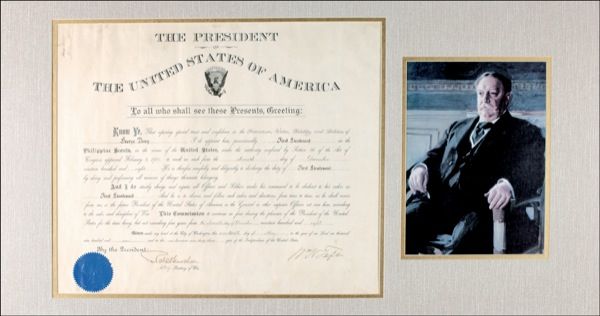 THE PRESIDENT
OF
THE UNITED STATES OF AMERICA
To all who shall see these Presents, Greeting:
Know Ye, That reposing special trust and confidence in the Patriotism, Valor, Fidelity and Abilities of
I do appoint him, provisionally, First Lieutenant in the
Philippine Scouts, in the service of the United States, under the authority conferred by Section 36 of the Act of
Congress approved February 2, 1901, to rank as such from the day of
nineteen hundred and eight. He is therefore carefully and diligently to discharge the duty of First Lieutenant
by doing and performing all manner of things thereunto belonging.
And I do strictly charge and require all Officers and Soldiers under his command to be obedient to his orders as
First Lieutenant. And he is to observe and follow such orders and directions, from time to time, as he shall receive
from me or the future President of the United States of America or the General or other superior Officers set over him, according
to the rules and discipline of War. This Commission to continue in force during the pleasure of the President of the United
States for the time being, but not exceeding four years from the nineteen hundred and
Given under my hand at the City of Washington, this day of in the year of our Lord one thousand
nine hundred and and in the one hundred and thirty of the Independence of the United States.
By the President:
Secretary of War.
Wm H Taft